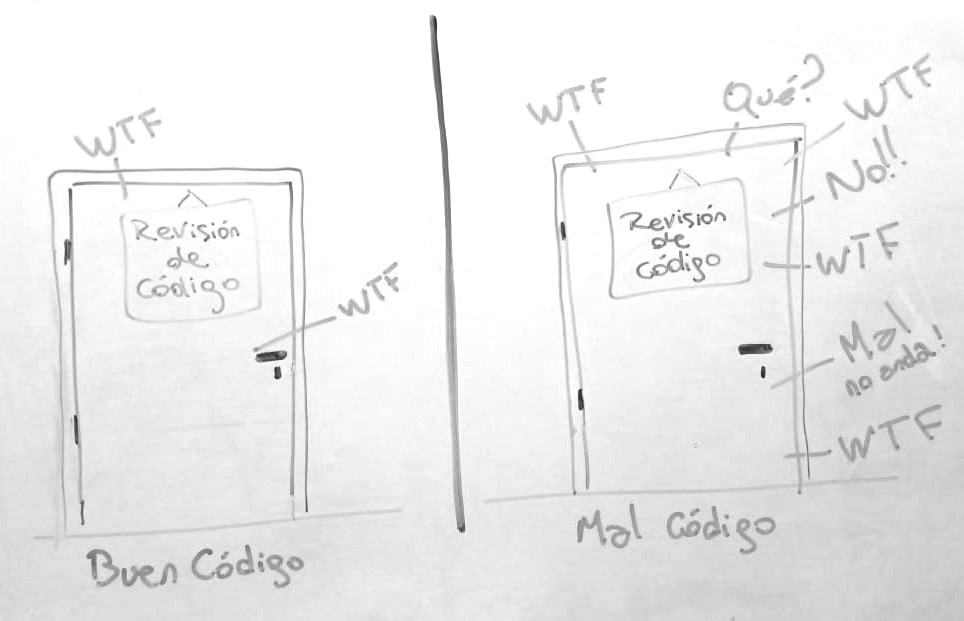 WTF
Revisión
de
Código
WTF
Buen Código
WTF
Qué?
WTF
No!!
Revisión
de
código
WTF
Mal
no anda!
WTF
Mal Código